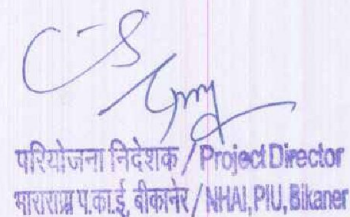 परियोजना निदेशक / Project Director
भाराराप्रा प.का.ई, बीकानेर / NHAI, PIU, Bikaner